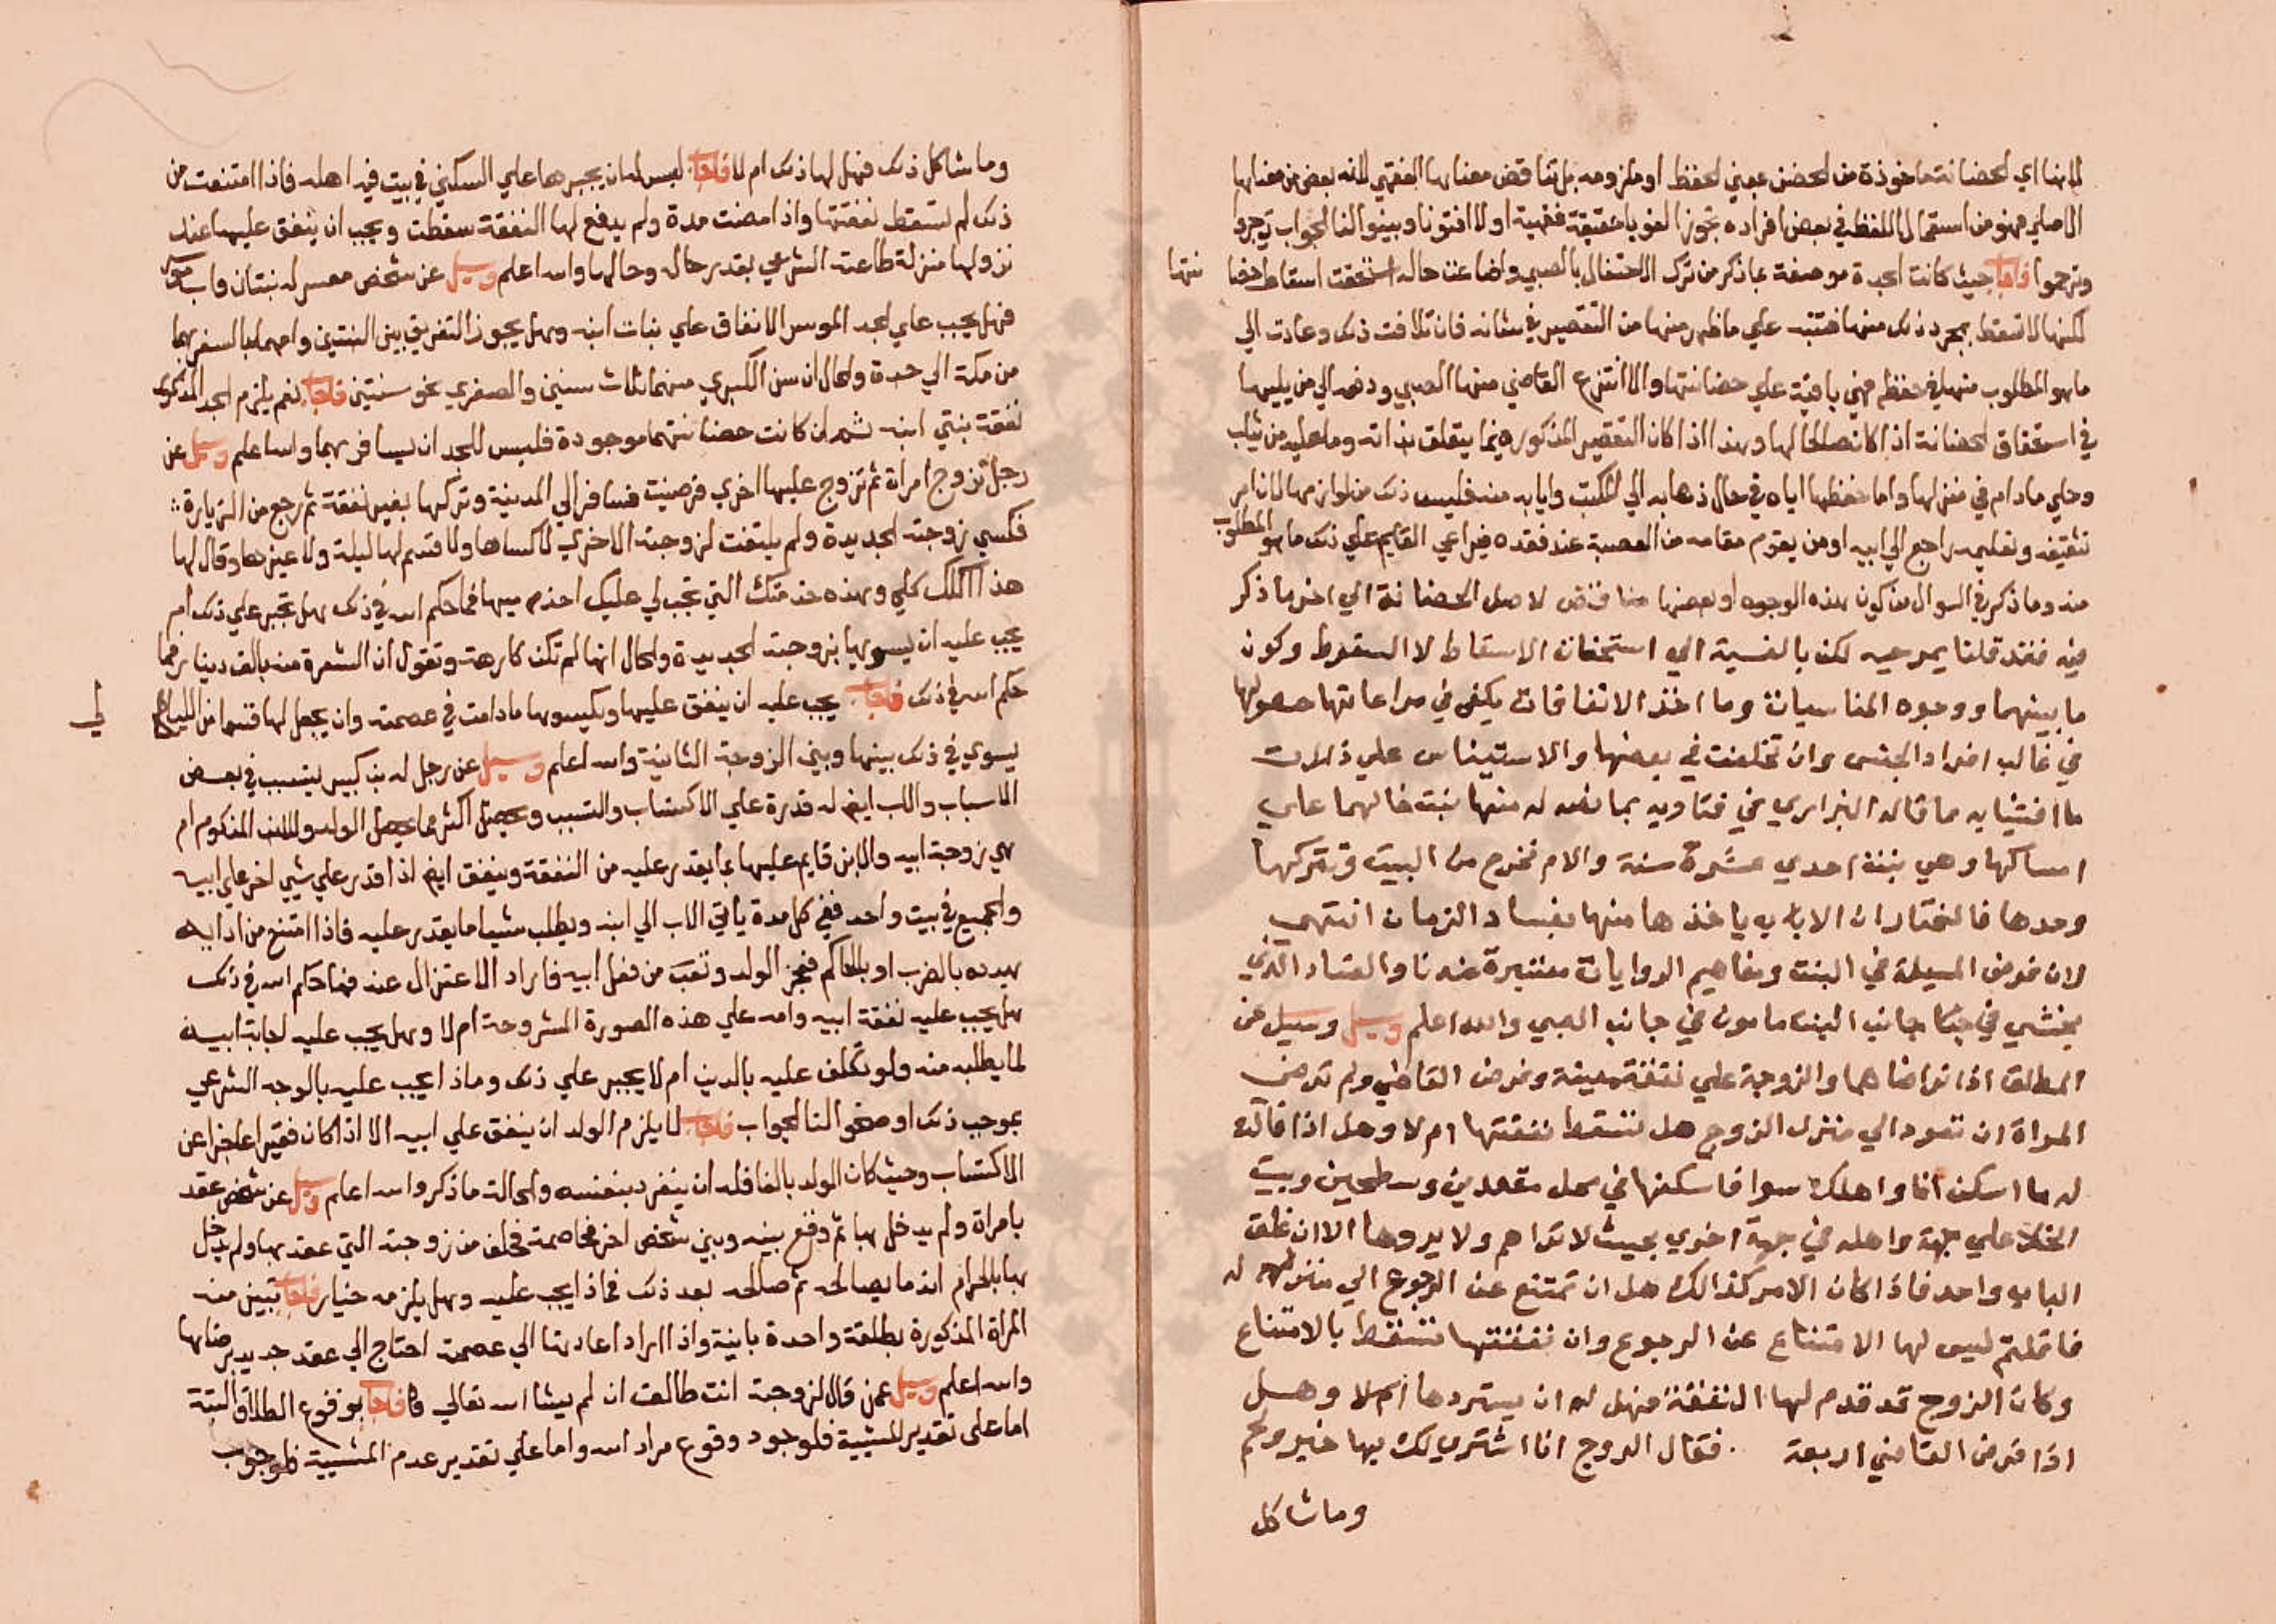 لانها اي الحضانة ماخوذة من الحضن بمعني الحفظ او ملزومه بل تناقض معناها الفقهي لانه بعض من معناها
الاصلي فهو من استعمال اللفظ في بعض افراده تجوزا لغويا حقيقة فقهية او لا افتونا وبينوا لنا الجواب توجروا
وترحموا فاجاب حيث كانت الجدة موصفة بما ذكر من ترك الاحتفال بالصبي واضاعت حاله استحقت اسقاط حضا نتها
لكنها لا تسقط بمجرد ذلك منها فتنبه علي ما ظهر منها من التقصير في شانه فان تلافت ذلك وعادت الي
ما هو المطلوب منها في حفظه فهي باقية علي حضانتها والا انتزع القاضي منها الصبي ودفعه الي من يليها
في استحقاق الحضانة اذا كان صالحا لها وهذا اذا كان التقصير المذكور فيما يتعلق بذاته وما عليه من ثياب
وحلي ما دام في منزلها واما حفظها اياه في حال ذهابه الي المكتب وايابه منه فليس ذلك من لوازمها لان امر
تثقيفه وتعليمه راجع الي ابيه او من يقوم مقامه من العصبة عند فقده فيراعي القايم علي ذلك ما هو المطلوب
منه وما ذكر في السوال من كون هذه الوجوه او بعضها مناقض لاصل الحضانة الي اخر ما ذكر
فيه فقد قلنا بموجبه لكن بالنسبة الي استحقاق الاسقاط لا السقوط وكون
ما بينهما ووجوه المناسبات وما اخذ الاتفاقات يكفي في مراعاتها حصولها
في غالب افراد الجنس وان تخلفت في بعضها والاستيناس علي ذلك
ما افتينا به ما قاله البزازي في فتاويه بما نصه له منها بنت خالهما علي
امساكها وهي بنت احدي عشرة سنة والام تخرج من البيت وتتركها
وحدها فالمختار ان الاب ياخذها منها بفساد الزمان انتهي
وان فرض المسيلة في البنت ومفاهيم الروايات معتبرة عندنا والفساد الذي
يخشي في جانب البنت مامون في جانب الصبي والله اعلم وسيل وسيل عن
المطلق اذا تراضاهما والزوجة علي نفقة معينة وفرض القاضي ولم ترض
المراة ان تعود الي منزل الزوج هل تسقط نفقتها ام لا وهل اذا قالت
له ما اسكن انا واهلك سوا فاسكنها في محل مقعدين وسطحين وبيت
الخلا علي جهة واهله في جهة اخري بحيث لا تراهم ولا يروها الا ان غلق
الباب واحد فاذا كان الامر كذالك هل ان تمتنع عن الرجوع الي منزله
فاقلتم ليس لها الامتناع عن الرجوع وان نفقتها تسقط بالامتناع
وكان الزوج قد قدم لها النفقة فهل له ان يستردها ام لا وهل
اذا فرض القاضي اربعة فقال الزوج انا اشتري لك بها خبز ولحم
وما شاكل
وما شاكل ذلك فهل لها ذلك ام لا فاجاب ليس له ان يجبرها علي السكني في بيت فيه اهله فاذا امتنعت من
ذلك لم تسقط نفقتها واذا مضت مدة ولم يدفع لها النفقة سقطت ويجب ان ينفق عليها عند
نزولها منزلة طاعته الشرعي بقدر حاله وحالها والله اعلم وسيل عن شخص معسر له بنتان واب موسر
فهل يجب علي الجد الموسر الانفاق علي بنات ابنه وهل يجوز التفريق بين البنتين وامهما بالسفر بهما
من مكة الي جدة والحال ان سن الكبري منهما ثلاث سنين والصغري نحو سنتين فاجاب نعم يلزم الجد المذكور
نفقة بنتي ابنه ثم ان كانت حضانتهما موجودة فليس للجد ان يسافر بهما والله اعلم وسيل عن
رجل تزوج امراة ثم تزوج عليها اخري فرضيت فسافر الي المدينة وتركها بغير نفقة ثم رجع من الزيارة
فكسي زوجته الجديدة ولم يلتفت لزوجته الاخري لا كساها ولا قسم لها ليلة ولا غيرها وقال لها
هذا اكلك كلي وهذه خدمتك التي تجب لي عليك اخدميها فما حكم الله في ذلك هل تجبر علي ذلك ام
يجب عليه ان يسويها بزوجته الجديدة والحال انها لم تكن كارهة وتقول ان الشعرة منه بالف دينار فما
حكم الله في ذلك فاجاب يجب عليه ان ينفق عليها ويكسوها ما دامت في عصمته وان يجعل لها قسما من الليالي
يسوي في ذلك بينها وبين الزوجة الثانية والله اعلم وسيل عن رجل له ابن كبير يتسبب في بعض
الاسباب والاب ايضا له قدرة علي الاكتساب والتسبب ويحصل اكثر مما يحصل الولد وللابن المذكور ام
هي زوجة ابيه والابن قايم عليها بما يقدر عليه من النفقة وينفق ايضا اذا قدر علي شيي اخر علي ابيه
والجميع في بيت واحد ففي كل مدة ياتي الاب الي ابنه ويطلب شيا ما يقدر عليه فاذا امتنع من ادايه
يهدده بالضرب او بالحاكم فعجز الولد وتعب من فعل ابيه فاراد الاعتزال عنه فما حكم الله في ذلك
هل يجب عليه نفقة ابيه وامه علي هذه الصورة المشروحة ام لا وهل يجب عليه اجابة ابيه
لما يطلبه منه ولو تكلف عليه بالدين ام لا يجبر علي ذلك وماذا يجب عليه بالوجه الشرعي
بموجب ذلك اوضحوا لنا الجواب فاجاب لا يلزم الولد ان ينفق علي ابيه الا اذا كان فقيرا عاجزا عن
الاكتساب وحيث كان الولد بالغا فله ان ينفرد بنفسه والحالة ما ذكر والله اعلم وسيل عن شخص عقد
بامراة ولم يدخل بها ثم وقع بينه وبين شخص اخر مخاصمة فحلف من زوجته التي عقد بها ولم يدخل
بها بالحرام انه ما يصالحه ثم صالحه بعد ذلك فماذا يجب عليه وهل يلزمه خيار فاجاب تبين منه
المراة المذكورة بطلقة واحدة باينة واذا اراد اعادتها الي عصمته احتاج الي عقد جديد برضاها
والله اعلم وسيل عمن قال لزوجته انت طالق ان لم يشا الله تعالي فاجاب بوقوع الطلاق البتة
اما علي تقدير المشيية فلوجود وقوع مراد الله واما علي تقدير عدم المشيية فلوجوب